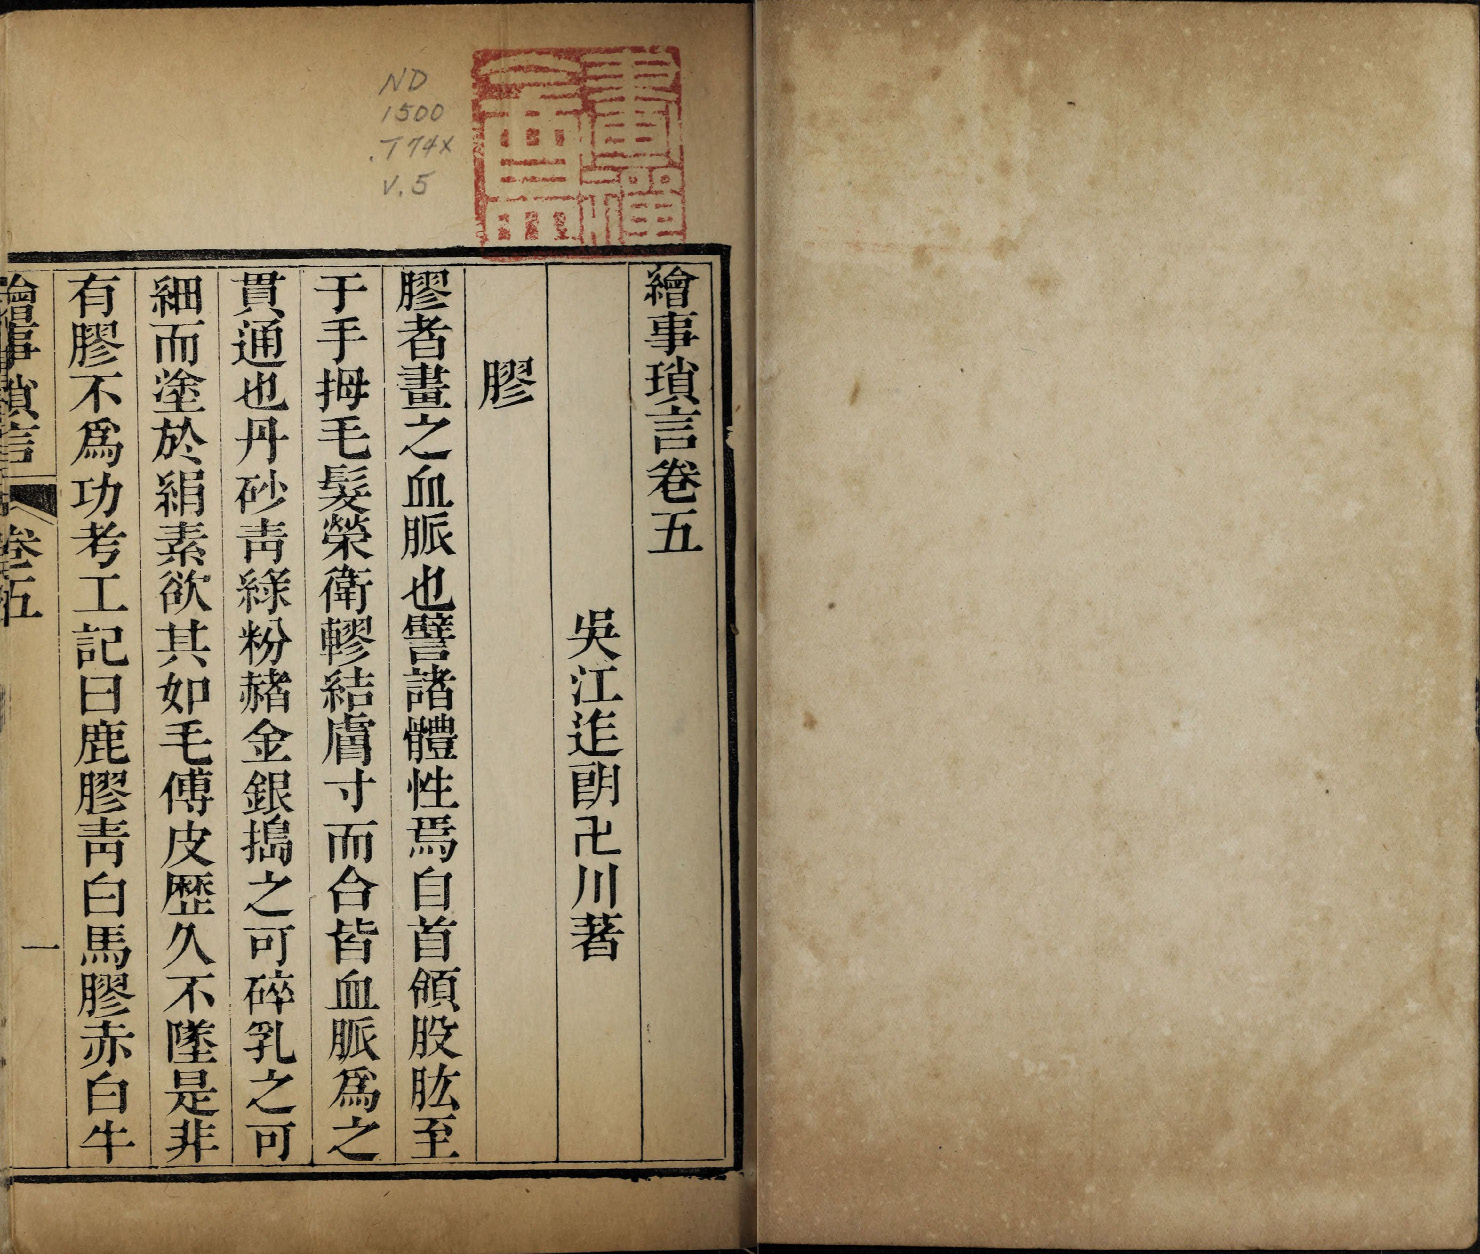 ND
1500
.T74x
v.5
繪事瑣言卷五
吳江迮朗卍川著
膠
膠者畫之血脈也譬諸體性焉自首頷股肱至
于手拇毛髮榮衛轇結膚寸而合皆血脈爲之
貫通也丹砂靑綠粉赭金銀搗之可碎乳之可
細而塗於絹素欲其如毛傅皮歷久不墜是非
有膠不爲功考工記曰鹿膠靑白馬膠赤白牛
繪事瑣言
卷五
一